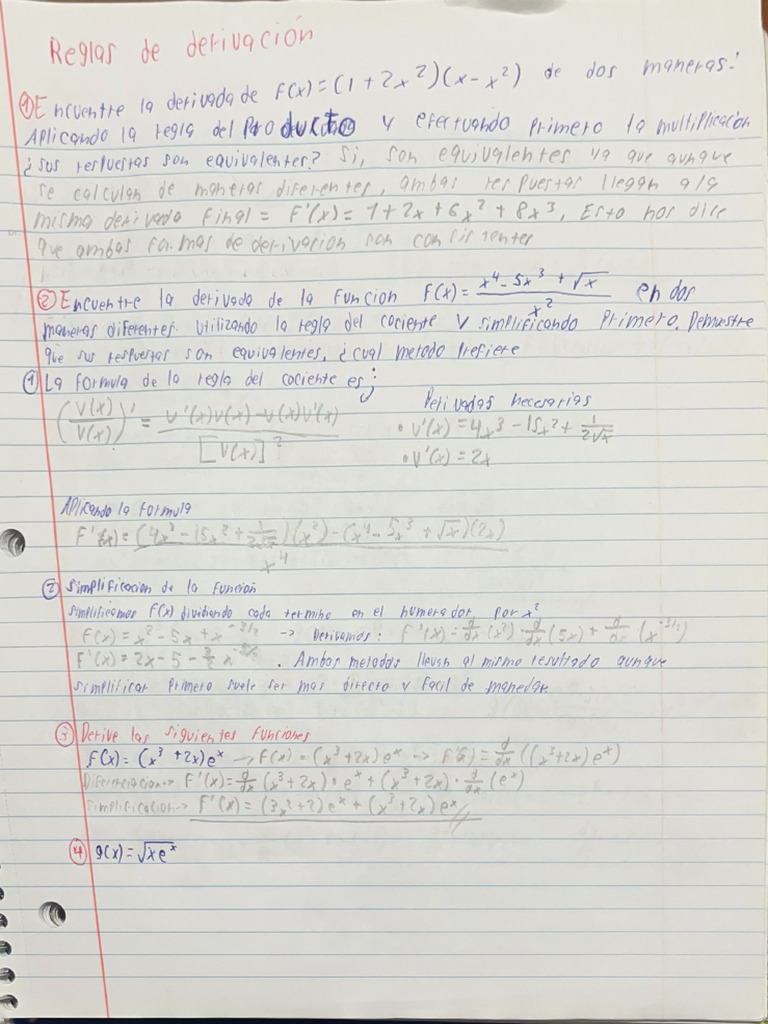 Reglas de derivación
① Encuentre la derivada de F(x)=(1+2x²)(x-x²) de dos maneras:
Aplicando la regla del Producto y efectuando primero la multiplicación
¿sus respuestas son equivalentes? Si, son equivalentes ya que aunque
se calculan de maneras diferentes, ambas respuestas llegan a la
misma derivada final = F'(x)= 1+2x+6x²+8x³, Esto nos dice
que ambas formas de derivación son consistentes
② Encuentre la derivada de la Funcion F(x)= (x⁴-5x³+√x)/x² en dos
maneras diferentes. Utilizando la regla del cociente y simplificando Primero. Demuestre
que sus respuestas son equivalentes, ¿cual metodo Prefiere
① La formula de la regla del cociente es;
(V(x)/V(x))' = (U'(x)V(x)-U(x)V'(x))/[V(x)]²
Derivadas necesarias
• U'(x)=4x³-15x²+1/(2√x)
• V'(x)=2x
Aplicando la Formula
F'(x)=((4x³-15x²+1/(2√x))(x²)-(x⁴-5x³+√x)(2x))/x⁴
② Simplificacion de la Función
Simplificamos F(x) dividiendo cada termino en el numerador por x²
F(x)=x²-5x+x^(-3/2) → Derivamos: F'(x)=d/dx(x²)-d/dx(5x)+d/dx(x^(-3/2))
F'(x)=2x-5-3/2x^(-5/2). Ambos metodos llevan al mismo resultado aunque
simplificar Primero suele ser mas directo y facil de manejar
③ Derive las siguientes funciones
f(x)=(x³+2x)eˣ → F(x)=(x³+2x)eˣ → F'(x)=d/dx((x³+2x)eˣ)
Diferenciacion→ F'(x)=d/dx(x³+2x)•eˣ+(x³+2x)•d/dx(eˣ)
Simplificacion→ F'(x)=(3x²+2)eˣ+(x³+2x)eˣ//
④ g(x)=√xeˣ